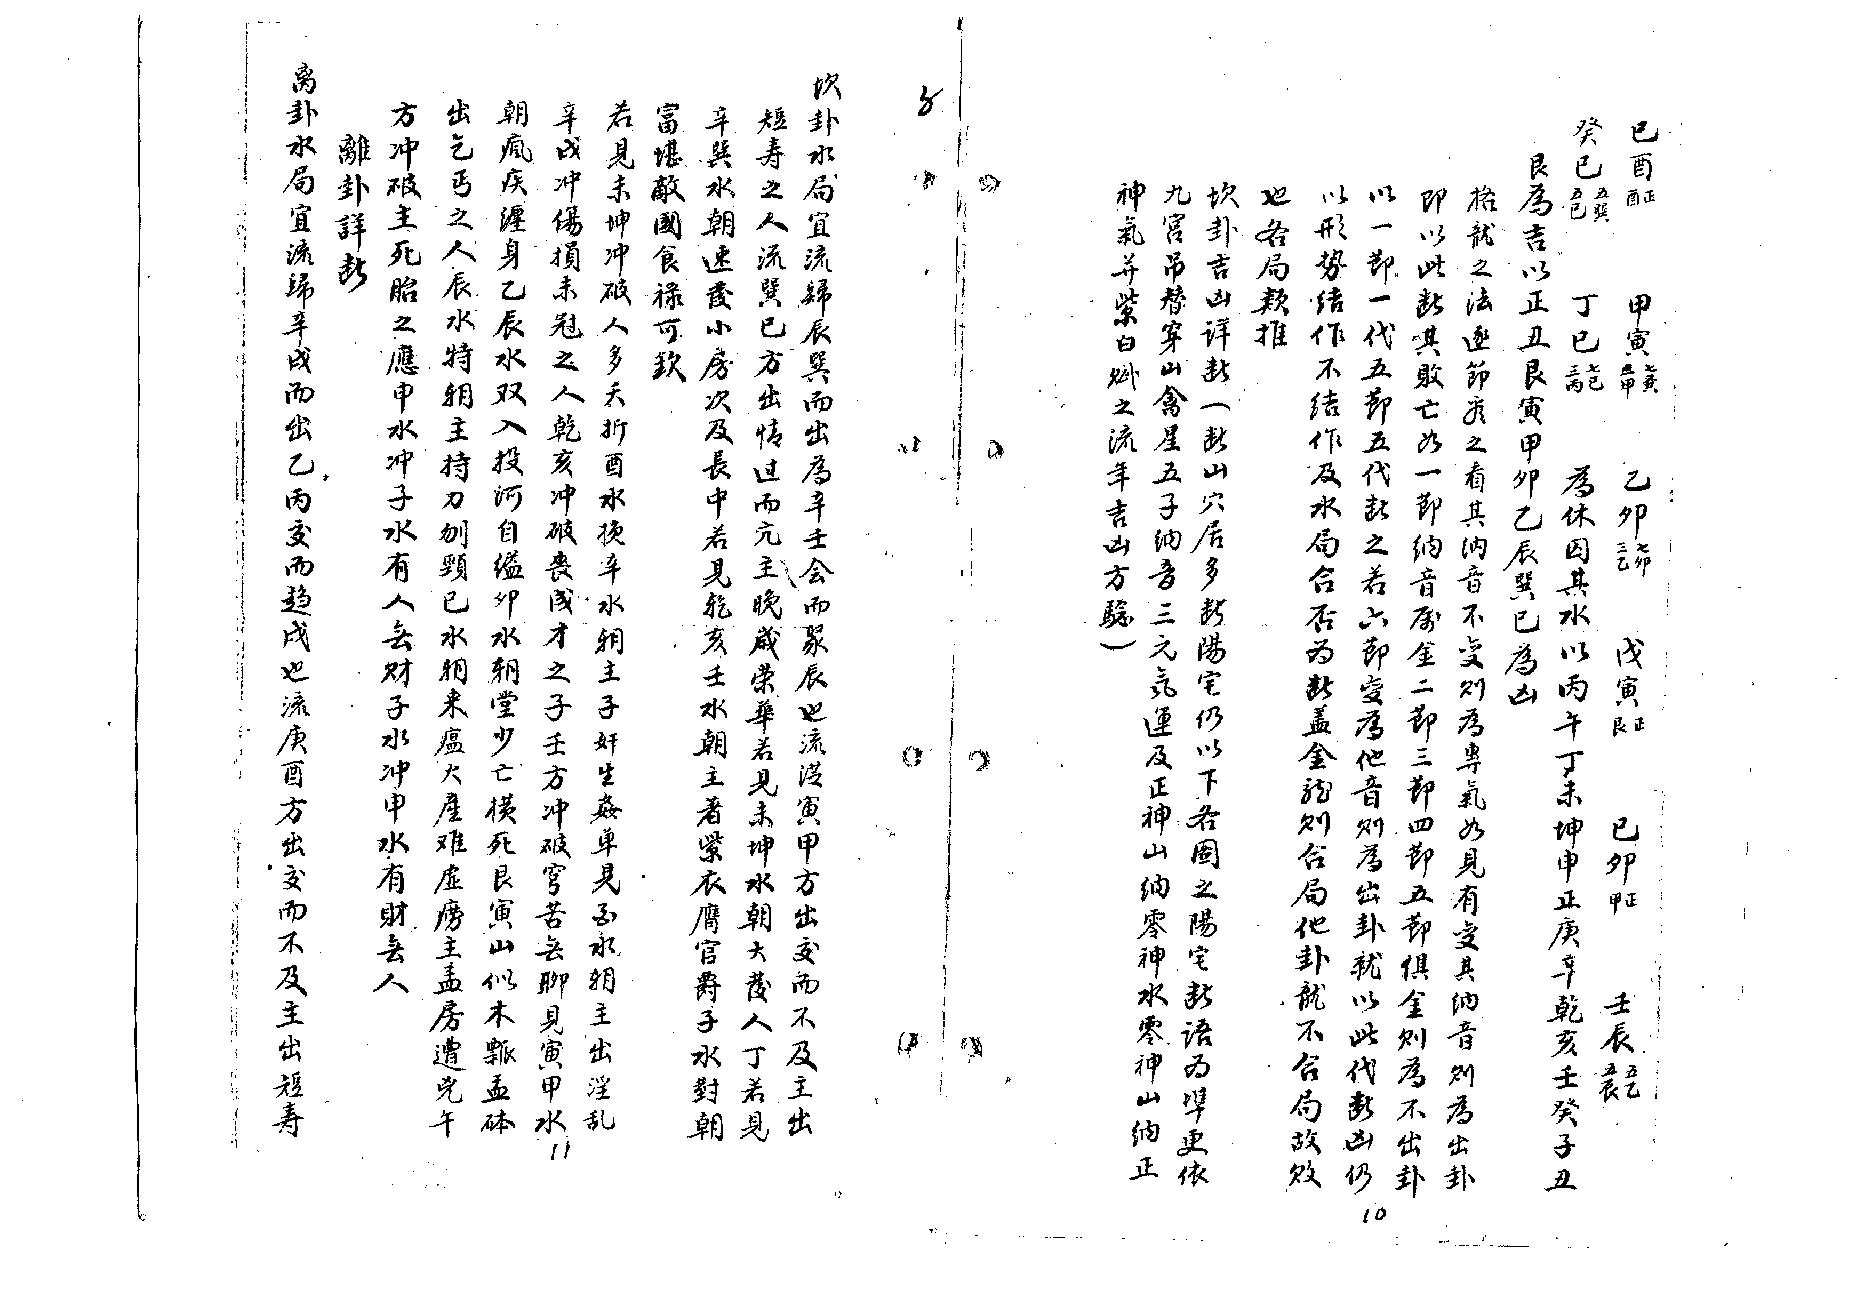 己酉正酉 甲寅七亥五甲 乙卯七卯三乙 戊寅正艮 己卯正甲 壬辰五乙五辰
癸巳五巽五巳 丁巳七巳三丙 為休囚其水以丙午丁未坤申正庚辛乾亥壬癸子丑
艮為吉以正丑艮寅甲卯乙辰巽巳為凶
格龍之法逐節彡之看其納音不变则為專氣如見有变其納音则為出卦
即以此断其敗亡如一節納音屬金二節三節四節五節俱金则為不出卦
以一節一代五節五代断之若六節变為他音则為出卦就以此代断凶仍
以形势结作不结作及水局合否为断盖金龍则合局他卦龍不合局故败
也各局類推
坎卦吉凶详断（断山穴居多断陽宅仍以下各圖之陽宅断語为準更依
九宮吊替穿山禽星五子納音三元気運及正神山納零神水零神山納正
神氣并紫白赋之流年吉凶方驗）
10
坎卦水局宜流歸辰巽而出為辛壬会而聚辰也流涇寅甲方出交而不及主出
短寿之人流巽巳方出情过而亢主晚歲荣華若見未坤水朝大發人丁若見
辛巽水朝速發小房次及長中若見乾亥壬水朝主著紫衣膺官爵子水對朝
富堪敵國食禄可欽
若見未坤冲破人多夭折酉水挾辛水朝主子奸生姦单見酉水朝主出淫乱
辛戌冲傷損未冠之人乾亥冲破喪成才之子壬方冲破穹苦無聊見寅甲水
朝瘋疾纏身乙辰水双入投河自缢卯水朝堂少亡横死艮寅山似木瓢盂砵
出乞丐之人辰水特朝主持刀刎頸巳水朝来瘟火産难虚癆主孟房遭兇午
方冲破主死胎之應申水冲子水有人無财子水冲申水有財無人
離卦詳断
离卦水局宜流歸辛戌而出乙丙交而趋戌也流庚酉方出交而不及主出短寿
11